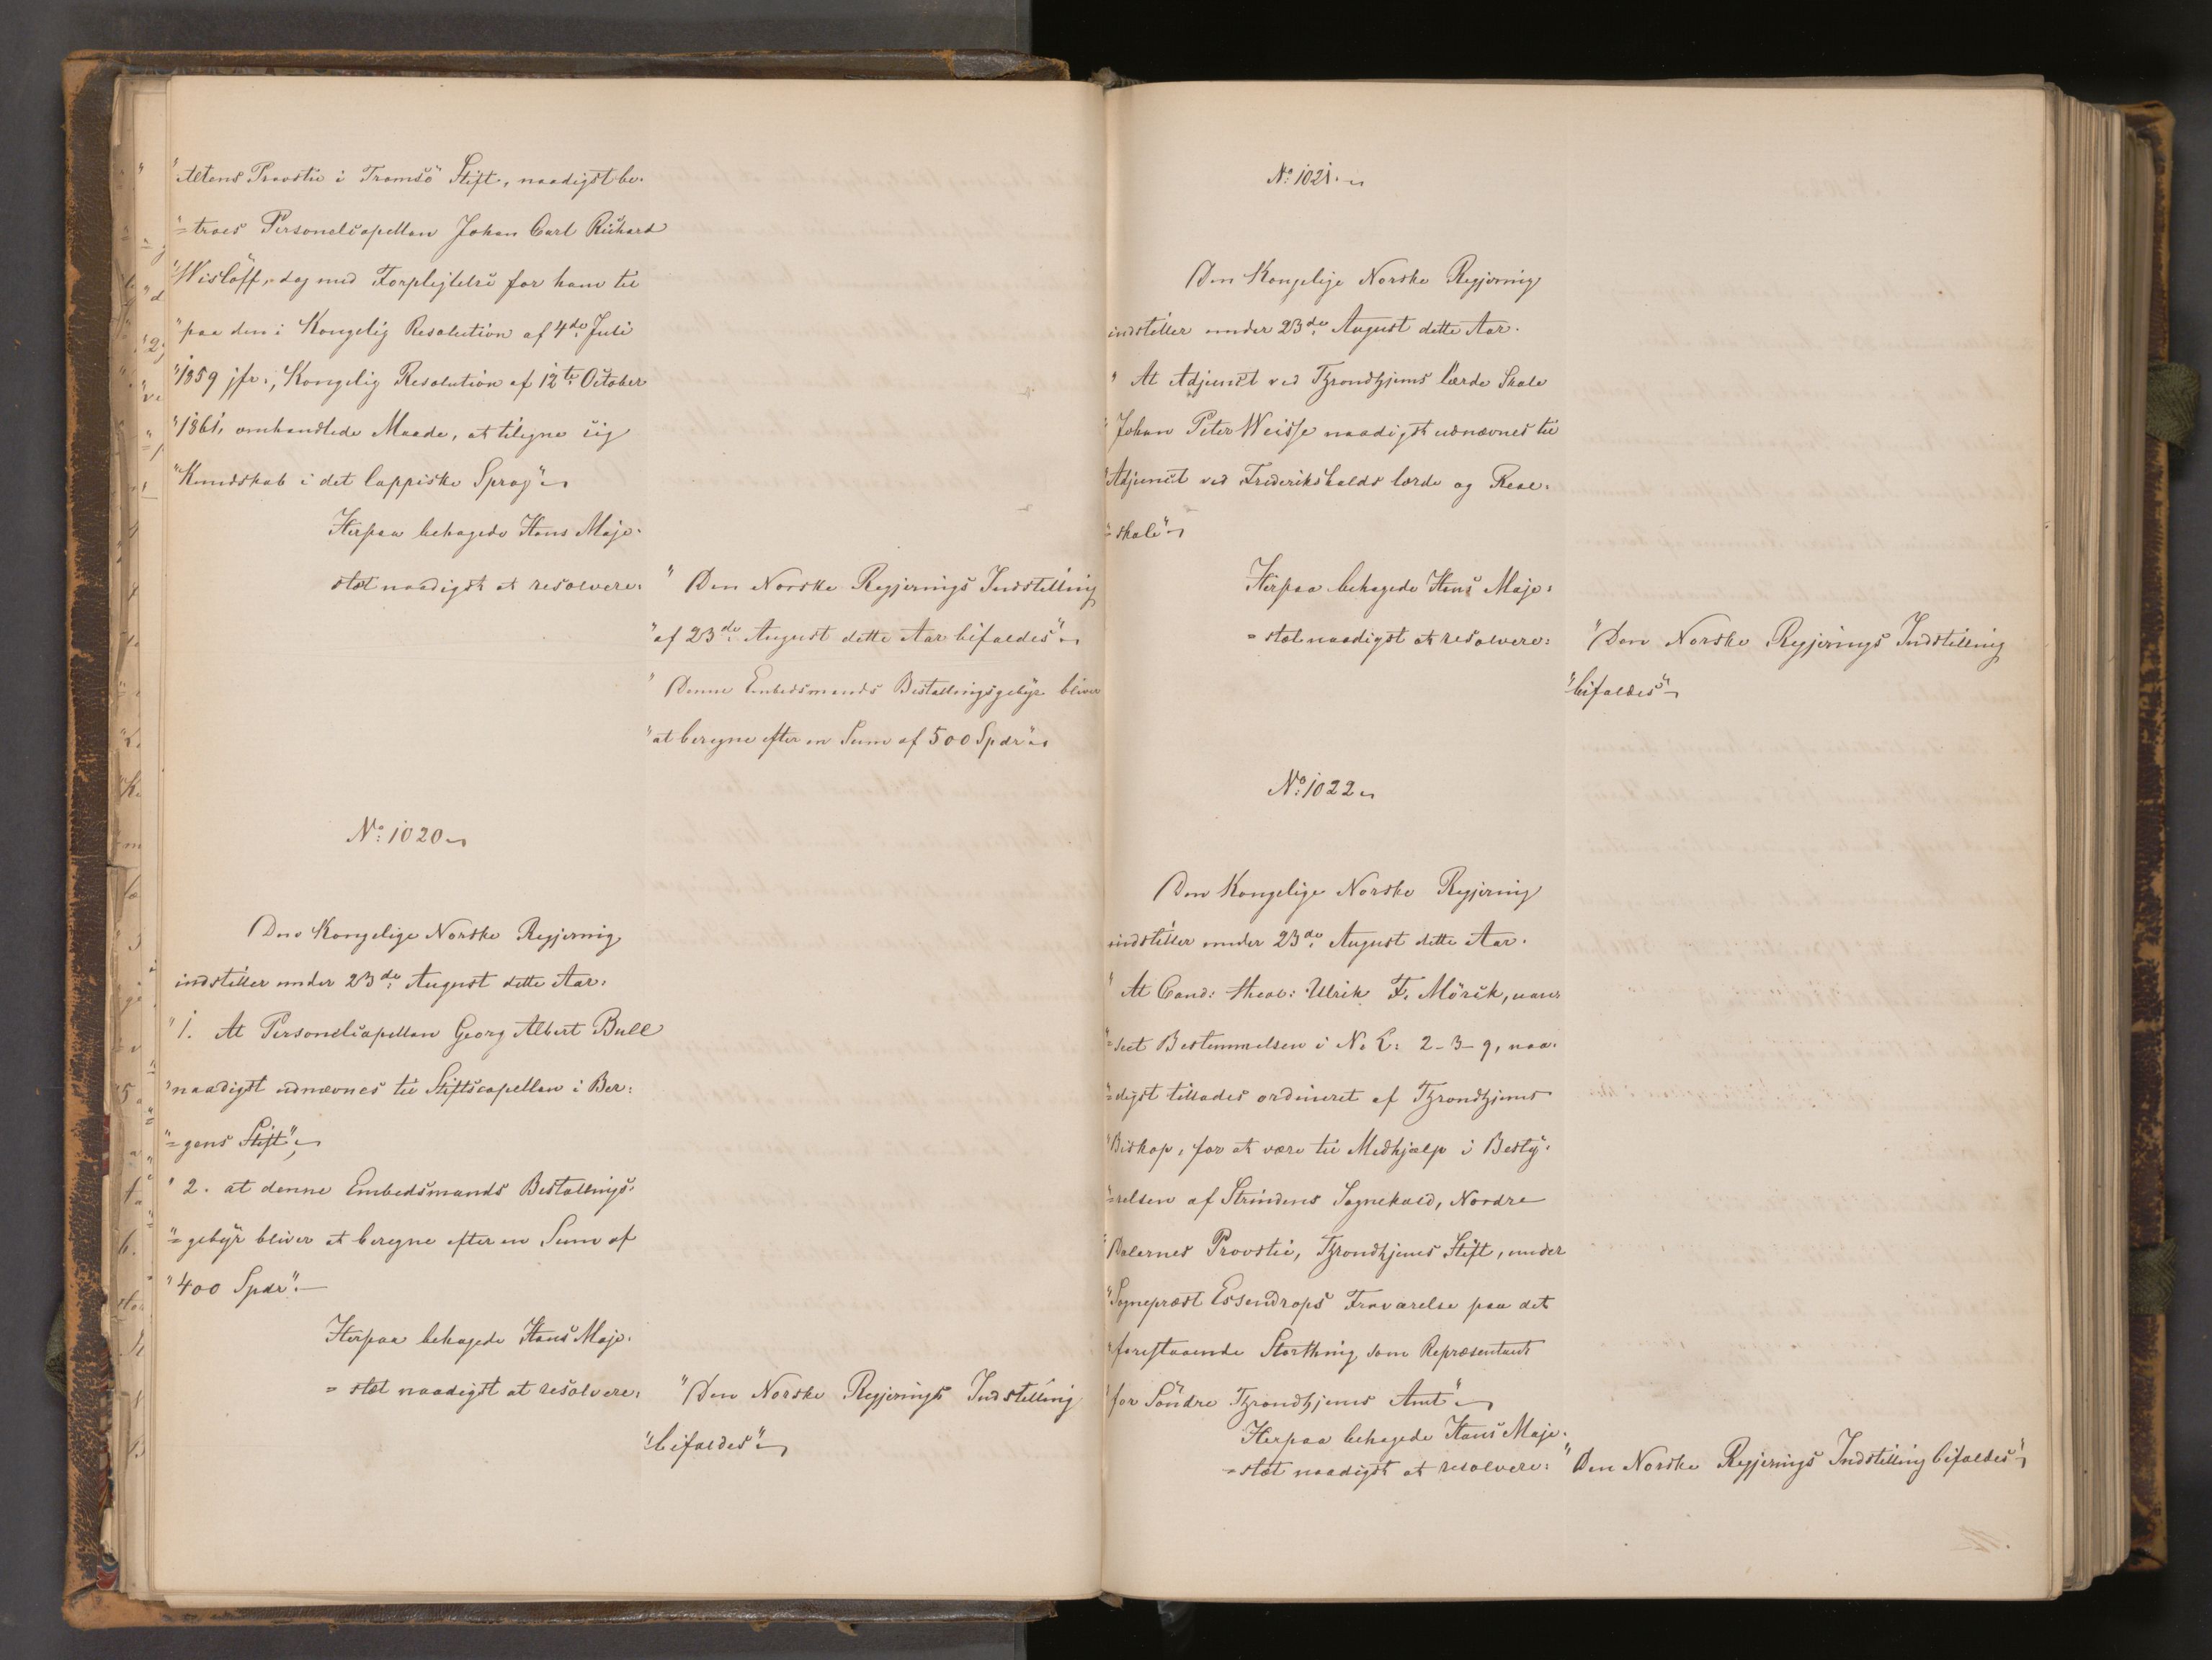 "Altens Provstie i Tromsö Stift, naadigst be-
"=troes Personelcapellan Johan Carl Richard
"Wislöff, dog med Forpligtelse for ham til
"paa den i Kongelig Resolution af 4de Juli
"1859 jfr., Kongelig Resolution af 12te October
"1861, omhandlede Maade, at tilegne sig
"Kundskab i det lappiske Sprog"
Herpaa behagede Hans Maje-
stæt naadigst at resolvere:
"Den Norske Regjerings Indstilling
"af 23de August dette Aar bifaldes"
"Denne Embedsmands Bestallingsgebyr bliver
"at beregne efter en Sum af 500 Spdr"
No: 1020
Den Kongelige Norske Regjering
indstiller under 23de August dette Aar:
"1. At Personelcapellan Georg Albert Bull
"naadigst udnævnes til Stiftscapellan i Ber=
"=gens Stift",
"2. at denne Embedsmands Bestallings=
"=gebyr bliver at beregne efter en Sum af
"400 Spdr".
Herpaa behagede Hans Maje-
=stæt naadigst at resolvere:
"Den Norske Regjerings Indstilling
"bifaldes"
No: 1021.
Den Kongelige Norske Regjering
indstiller under 23de August dette Aar.
"At Adjunct ved Throndhjems lærde Skole
"Johan Peter Weisse naadigst udnævnes til
"Adjunct ved Frederikshalds lærde og Real=
"=skole"
Herpaa behagede Hans Maje=
=stæt naadigst at resolvere:
"Den Norske Regjerings Indstilling
"bifaldes"
No: 1022
Den Kongelige Norske Regjering
indstiller under 23de August dette Aar.
"At Cand: theol: Ulrik F. Mörck, uan=
"=seet Bestemmelsen i N. L: 2-3-9, naa-
"=digst tillades ordineret af Throndhjems
"Biskop, for at være til Medhjælp i Besty=
"=relsen af Strindens Sognekald, Nordre
"Dalernes Provstie, Throndhjems Stift, under
"Sognepræst Essendrops Fraværelse paa det
"forestaaende Storthing som Repræsentant
"for Söndre Throndhjems Amt"
Herpaa behagede Hans Maje-
=stæt naadigst at resolvere:
"Den Norske Regjerings Indstilling bifaldes"